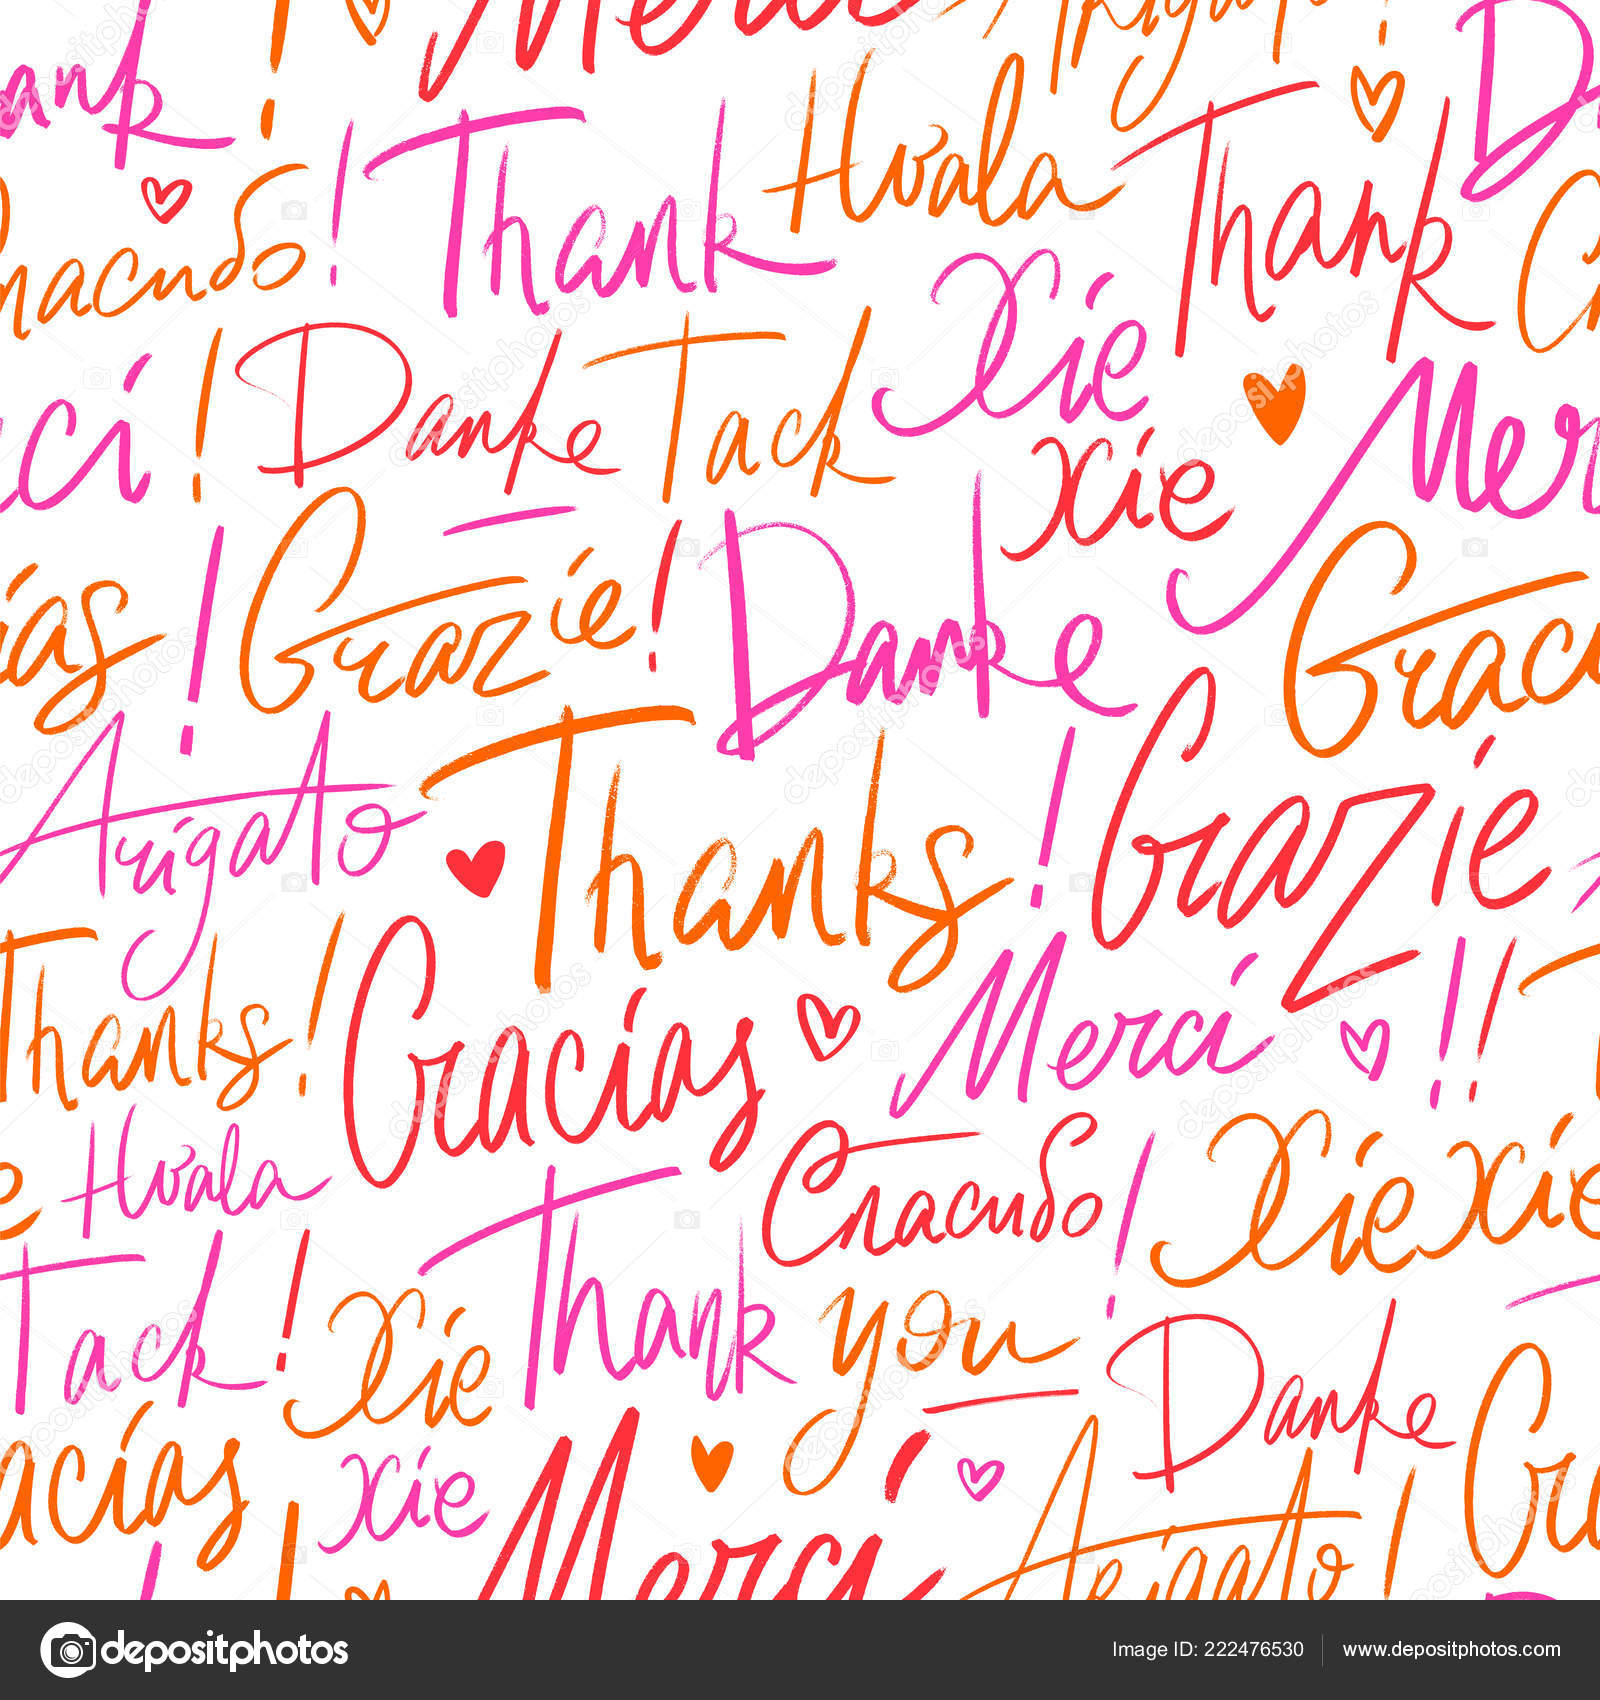 Merci Arigato!
ank ! Thank Hvala Thank D
Спасибо! Xie
ci! Danke Tack xie Mer
ias! Grazie! Danke Graci
Arigato Thanks! Grazie
Thanks! Gracias Merci!!
Hvala Спасибо! Xie xie
Tack! Xie Thank you Danke
acias xie Merci Arigato! Gra
depositphotos
Image ID: 222476530 www.depositphotos.com